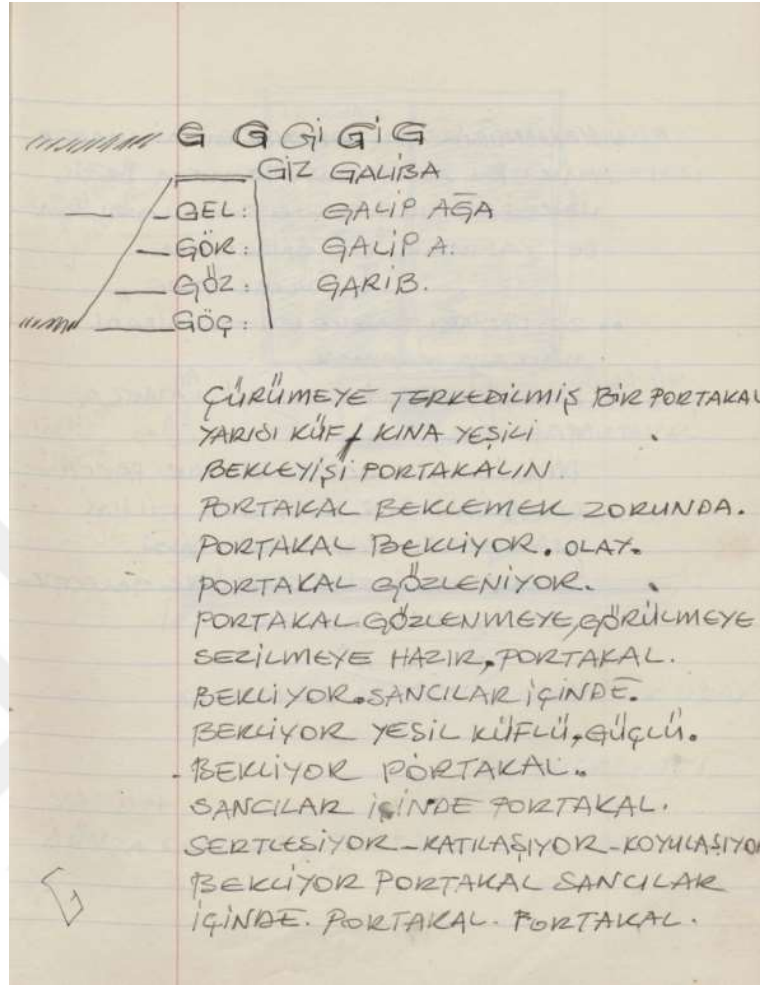 G G Gi GİG
GİZ GALİBA
GEL: GALİP AĞA
GÖR: GALİP A.
GÖZ: GARİB.
GÖÇ:
ÇÜRÜMEYE TERKEDİLMİŞ BİR PORTAKAL
YARISI KÜF / KINA YEŞİLİ
BEKLEYİŞİ PORTAKALIN.
PORTAKAL BEKLEMEK ZORUNDA.
PORTAKAL BEKLİYOR. OLAY.
PORTAKAL GÖZLENİYOR.
PORTAKAL GÖZLENMEYE, GÖRÜLMEYE
SEZİLMEYE HAZIR, PORTAKAL.
BEKLİYOR. SANCILAR İÇİNDE.
BEKLİYOR YESİL KÜFLÜ, GÜÇLÜ.
- BEKLİYOR PORTAKAL.
SANCILAR İÇİNDE PORTAKAL.
SERTLESİYOR - KATILAŞIYOR - KOYULAŞIYOR
BEKLİYOR PORTAKAL SANCILAR
İÇİNDE. PORTAKAL. PORTAKAL.